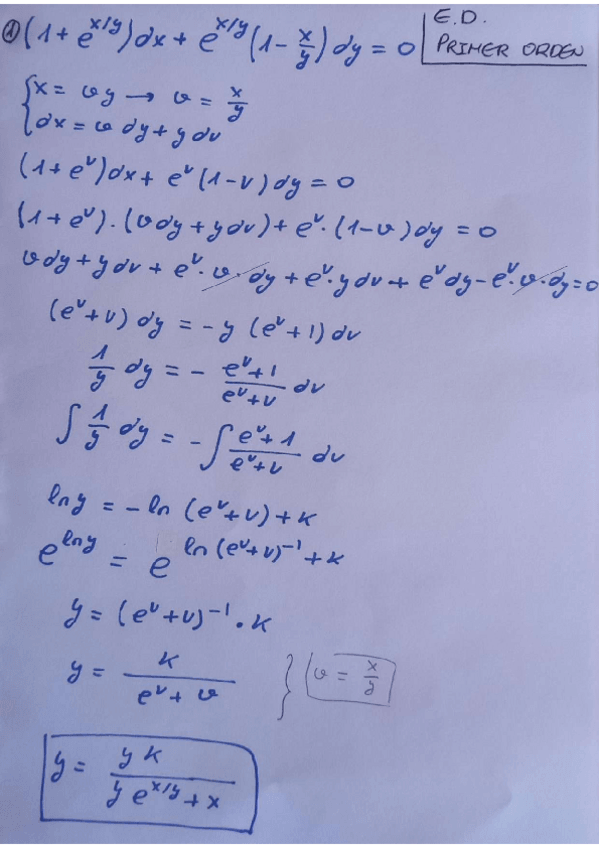 ① (1 + e^{x/y}) dx + e^{x/y} (1 - x/y) dy = 0
E.D.
PRIMER ORDEN
{ x = vy → v = x/y
{ dx = v dy + y dv
(1 + e^v) dx + e^v (1 - v) dy = 0
(1 + e^v) · (v dy + y dv) + e^v · (1 - v) dy = 0
v dy + y dv + e^v · v · dy + e^v · y dv + e^v dy - e^v · v · dy = 0
(e^v + v) dy = - y (e^v + 1) dv
1/y dy = - (e^v + 1)/(e^v + v) dv
∫ 1/y dy = - ∫ (e^v + 1)/(e^v + v) dv
ln y = - ln (e^v + v) + k
e^{ln y} = e^{ln (e^v + v)^{-1} + k}
y = (e^v + v)^{-1} · k
y = k/(e^v + v) } v = x/y
y = yk/(y e^{x/y} + x)